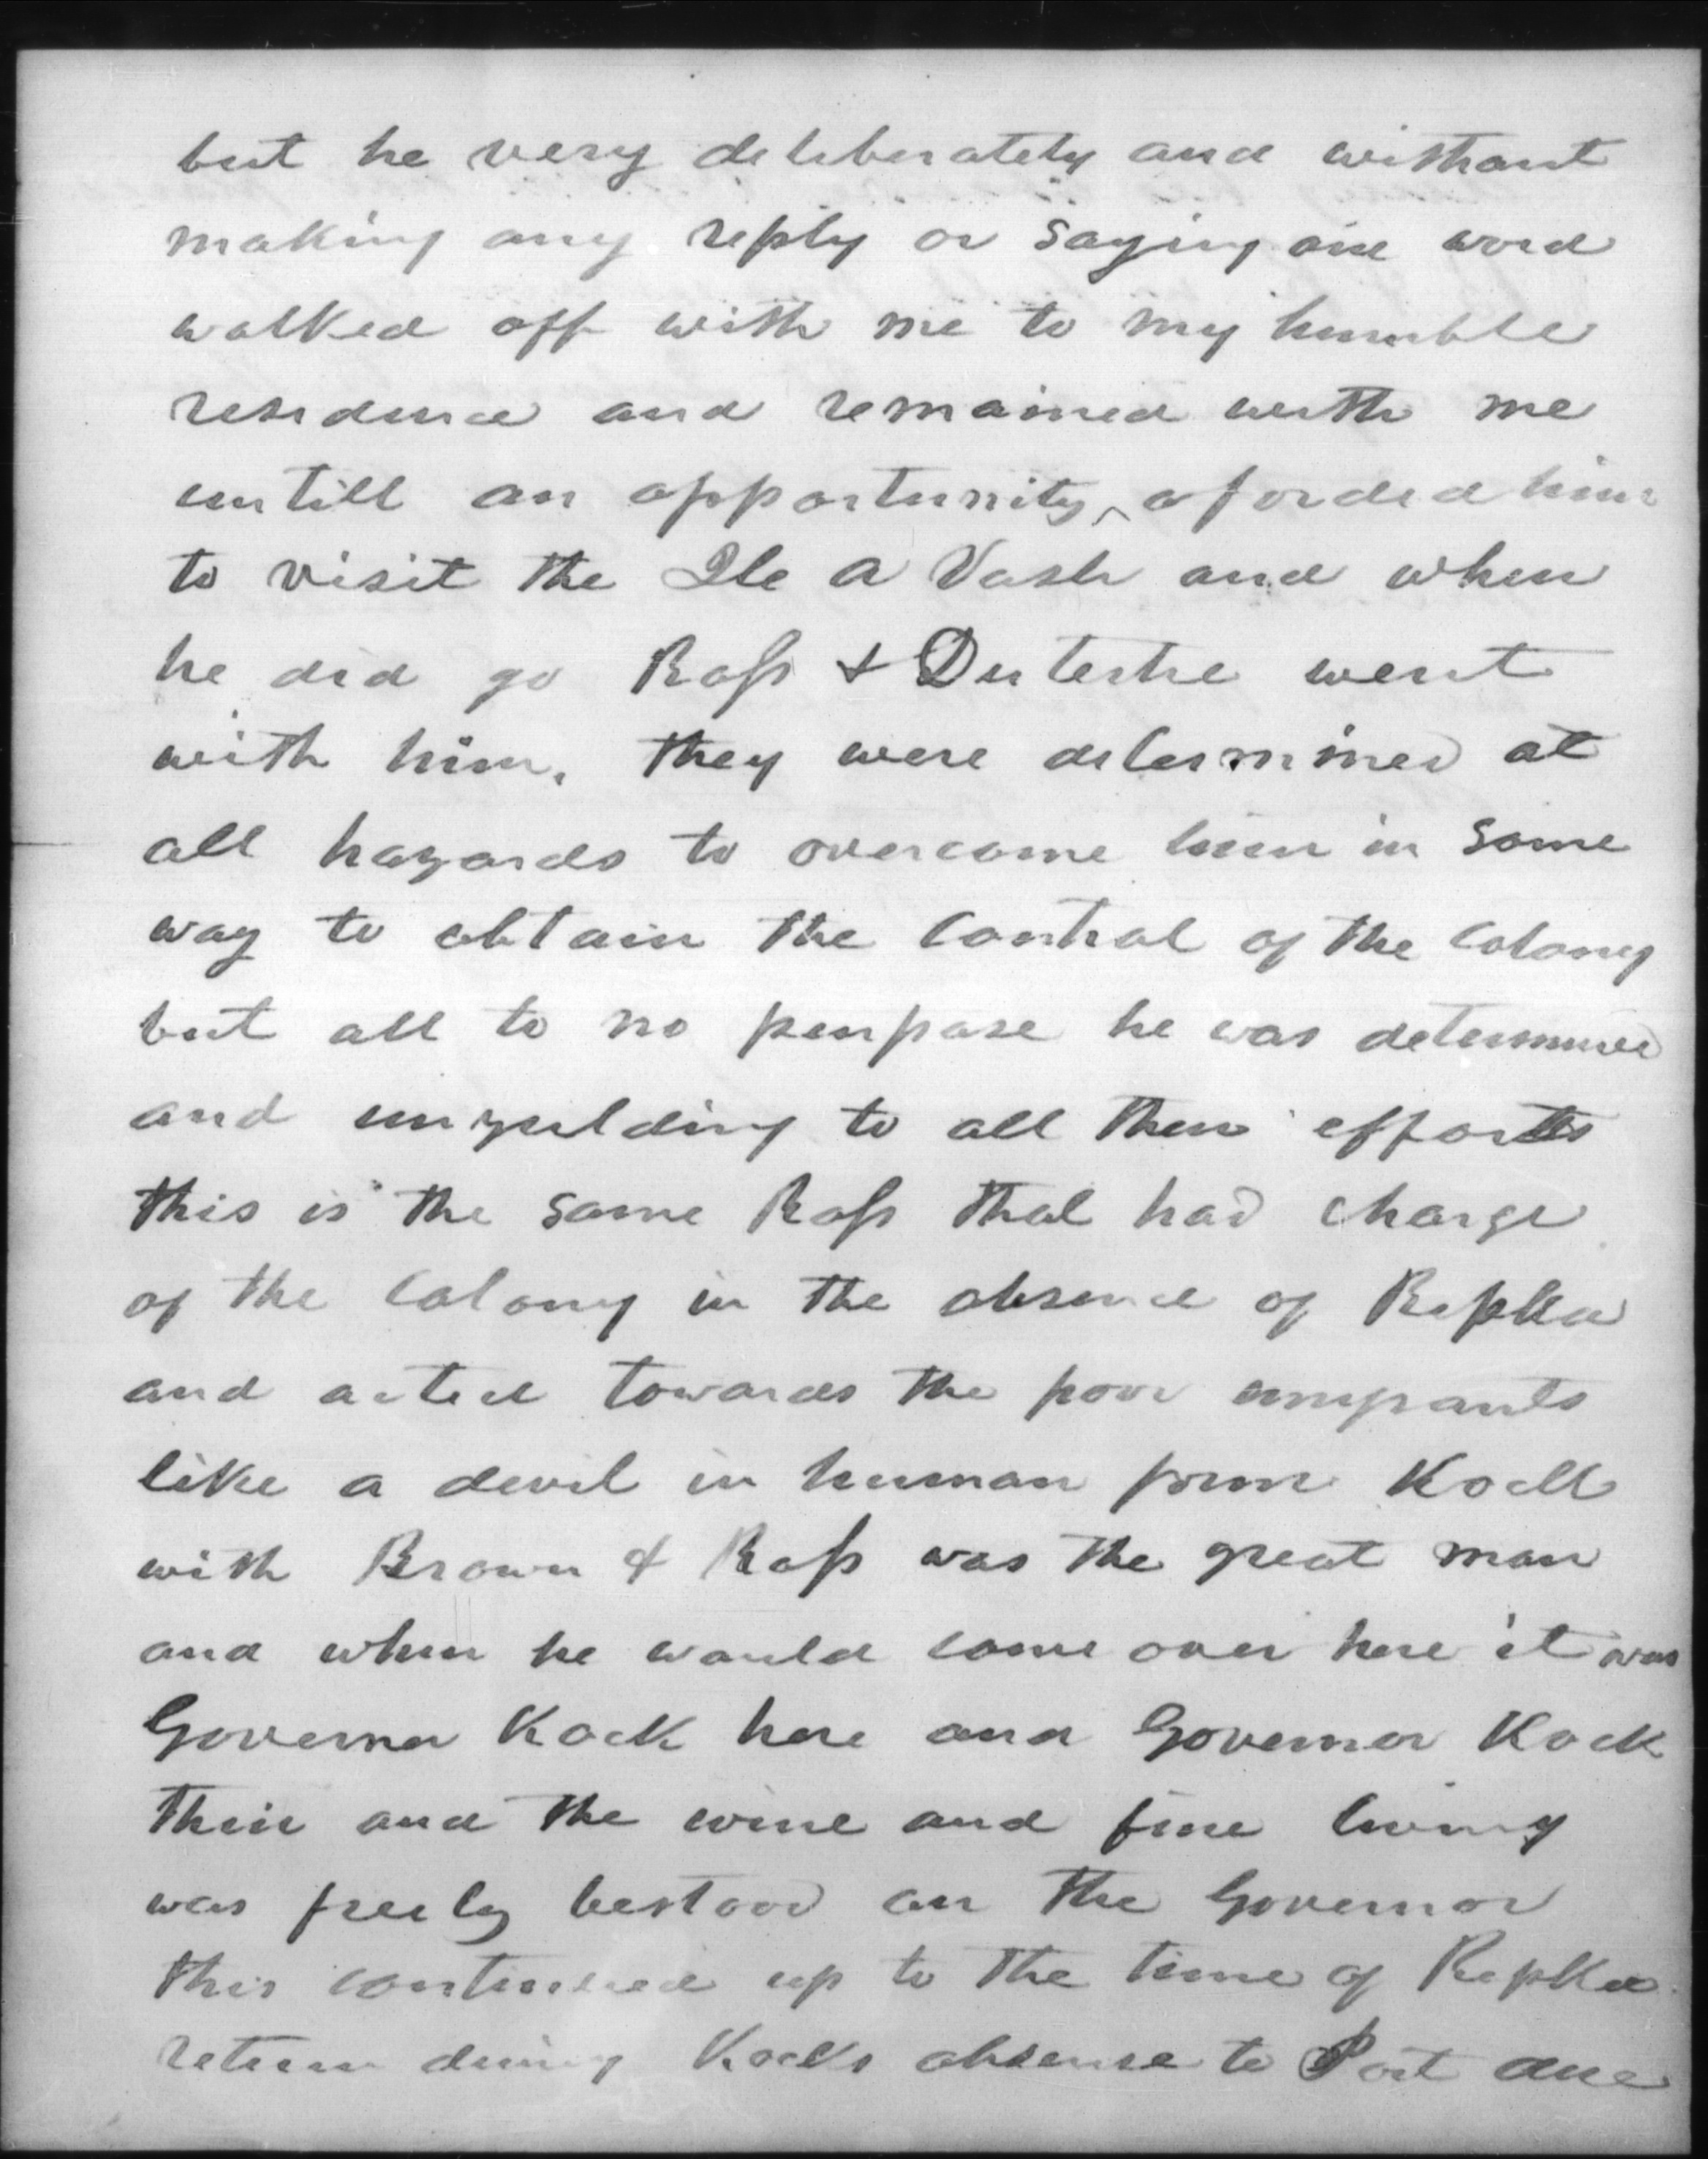 but he very deliberately and without
making any reply or saying one word
walked off with me to my humble
residence and remained with me
untill an opportunity aforded him
to visit the Ile A Vash and when
he did go Ross & Dutertre went
with him. they were determined at
all hazards to overcome him in some
way to obtain the Control of the Colony
but all to no purpose he was determined
and unyeilding to all their efforts
this is the same Ross that had charge
of the Colony in the absence of Repka
and acted towards the poor emigrants
like a devil in human form Kock
with Brown & Ross was the great man
and when he would come over here it was
Governor Kock here and Governor Kock
their and the wine and fine living
was freely bestood on the Governor
this continued up to the time of Repka
return during Kocks absense to Port au